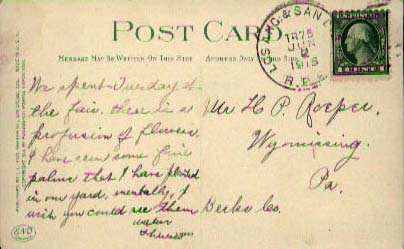 POST CARD
MESSAGE MAY BE WRITTEN ON THIS SIDE
ADDRESS ONLY ON THIS SIDE
LOS ANG. & SAN
JUN
2
1915
R.P.O.
We spent Tuesday at
the fair, there is a
profusion of flowers.
I have seen some fine
palms that I have planted
in our yard, mentally, I
wish you could see them
Mr H. P. Roeper.
Wyomissing
Pa.
Berks Co.